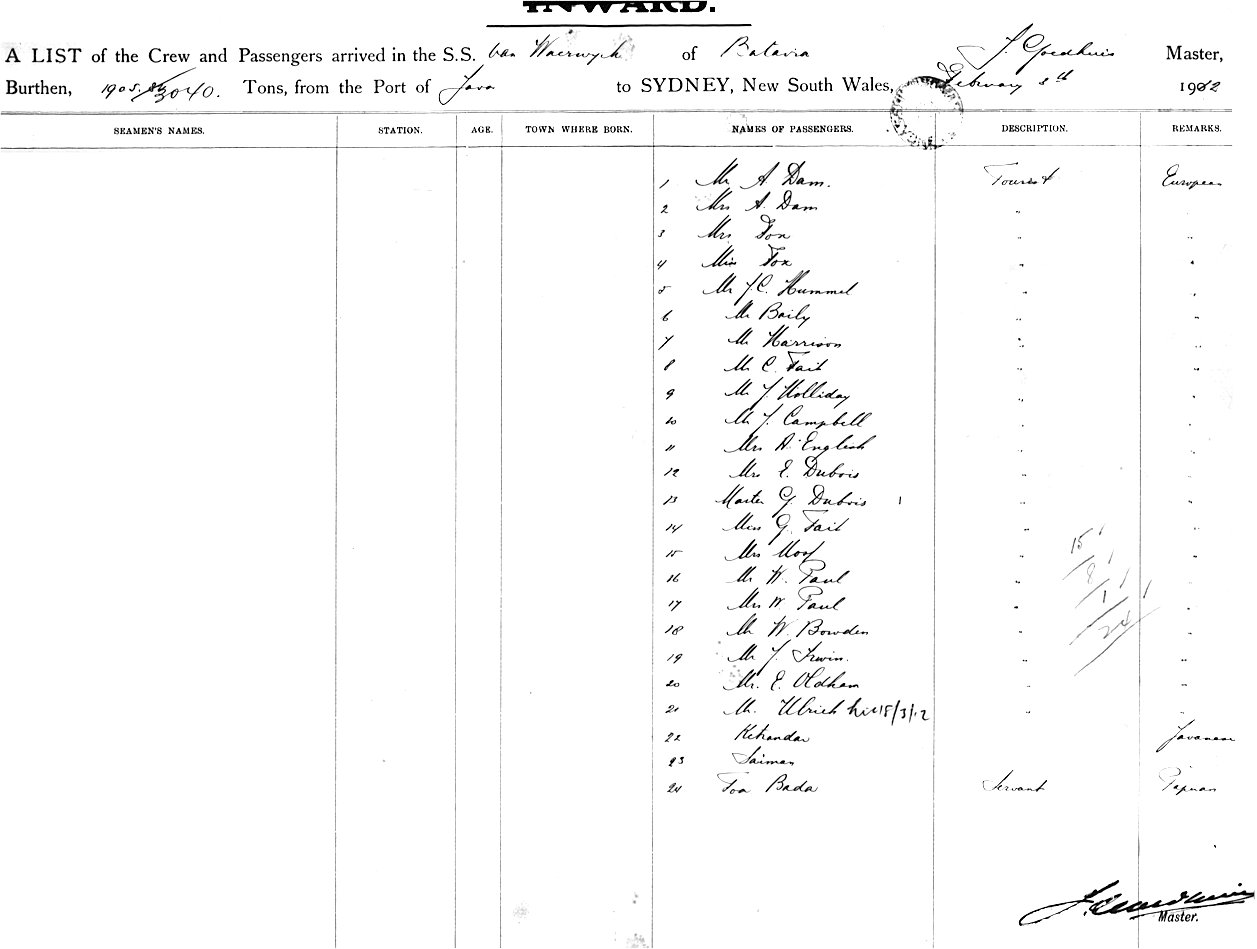 INWARD.
A LIST of the Crew and Passengers arrived in the S.S. Van Waerwyck of Batavia J Goedhuis Master,
Burthen, 1905. 3040. Tons, from the Port of Java to SYDNEY, New South Wales, February 8th 1912
SEAMEN'S NAMES. STATION. AGE. TOWN WHERE BORN. NAMES OF PASSENGERS. DESCRIPTION. REMARKS.
1 Mr A. Dam. Tourist European
2 Mrs A. Dam " "
3 Mrs Fox " "
4 Miss Fox " "
5 Mr J.C. Hummel " "
6 Mr Baily " "
7 Mr Harrison " "
8 Mr C. Tait " "
9 Mr J. Holliday " "
10 Mr J. Campbell " "
11 Mrs A. English " "
12 Mrs E. Dubois " "
13 Master G. Dubois 1 " "
14 Miss G. Tait " "
15 Mrs " "
16 Mr W. Paul " "
17 Mrs W. Paul " "
18 Mr W. Bowden " "
19 Mr J. Irwin. " "
20 Mr. E. Oldham " "
21 Mr. Ulrich 18/3/12 " "
22 Javanese
23 Saiman
24 Toa Bada Servant Papuan
15
8
1
24
J. Goedhuis
Master.